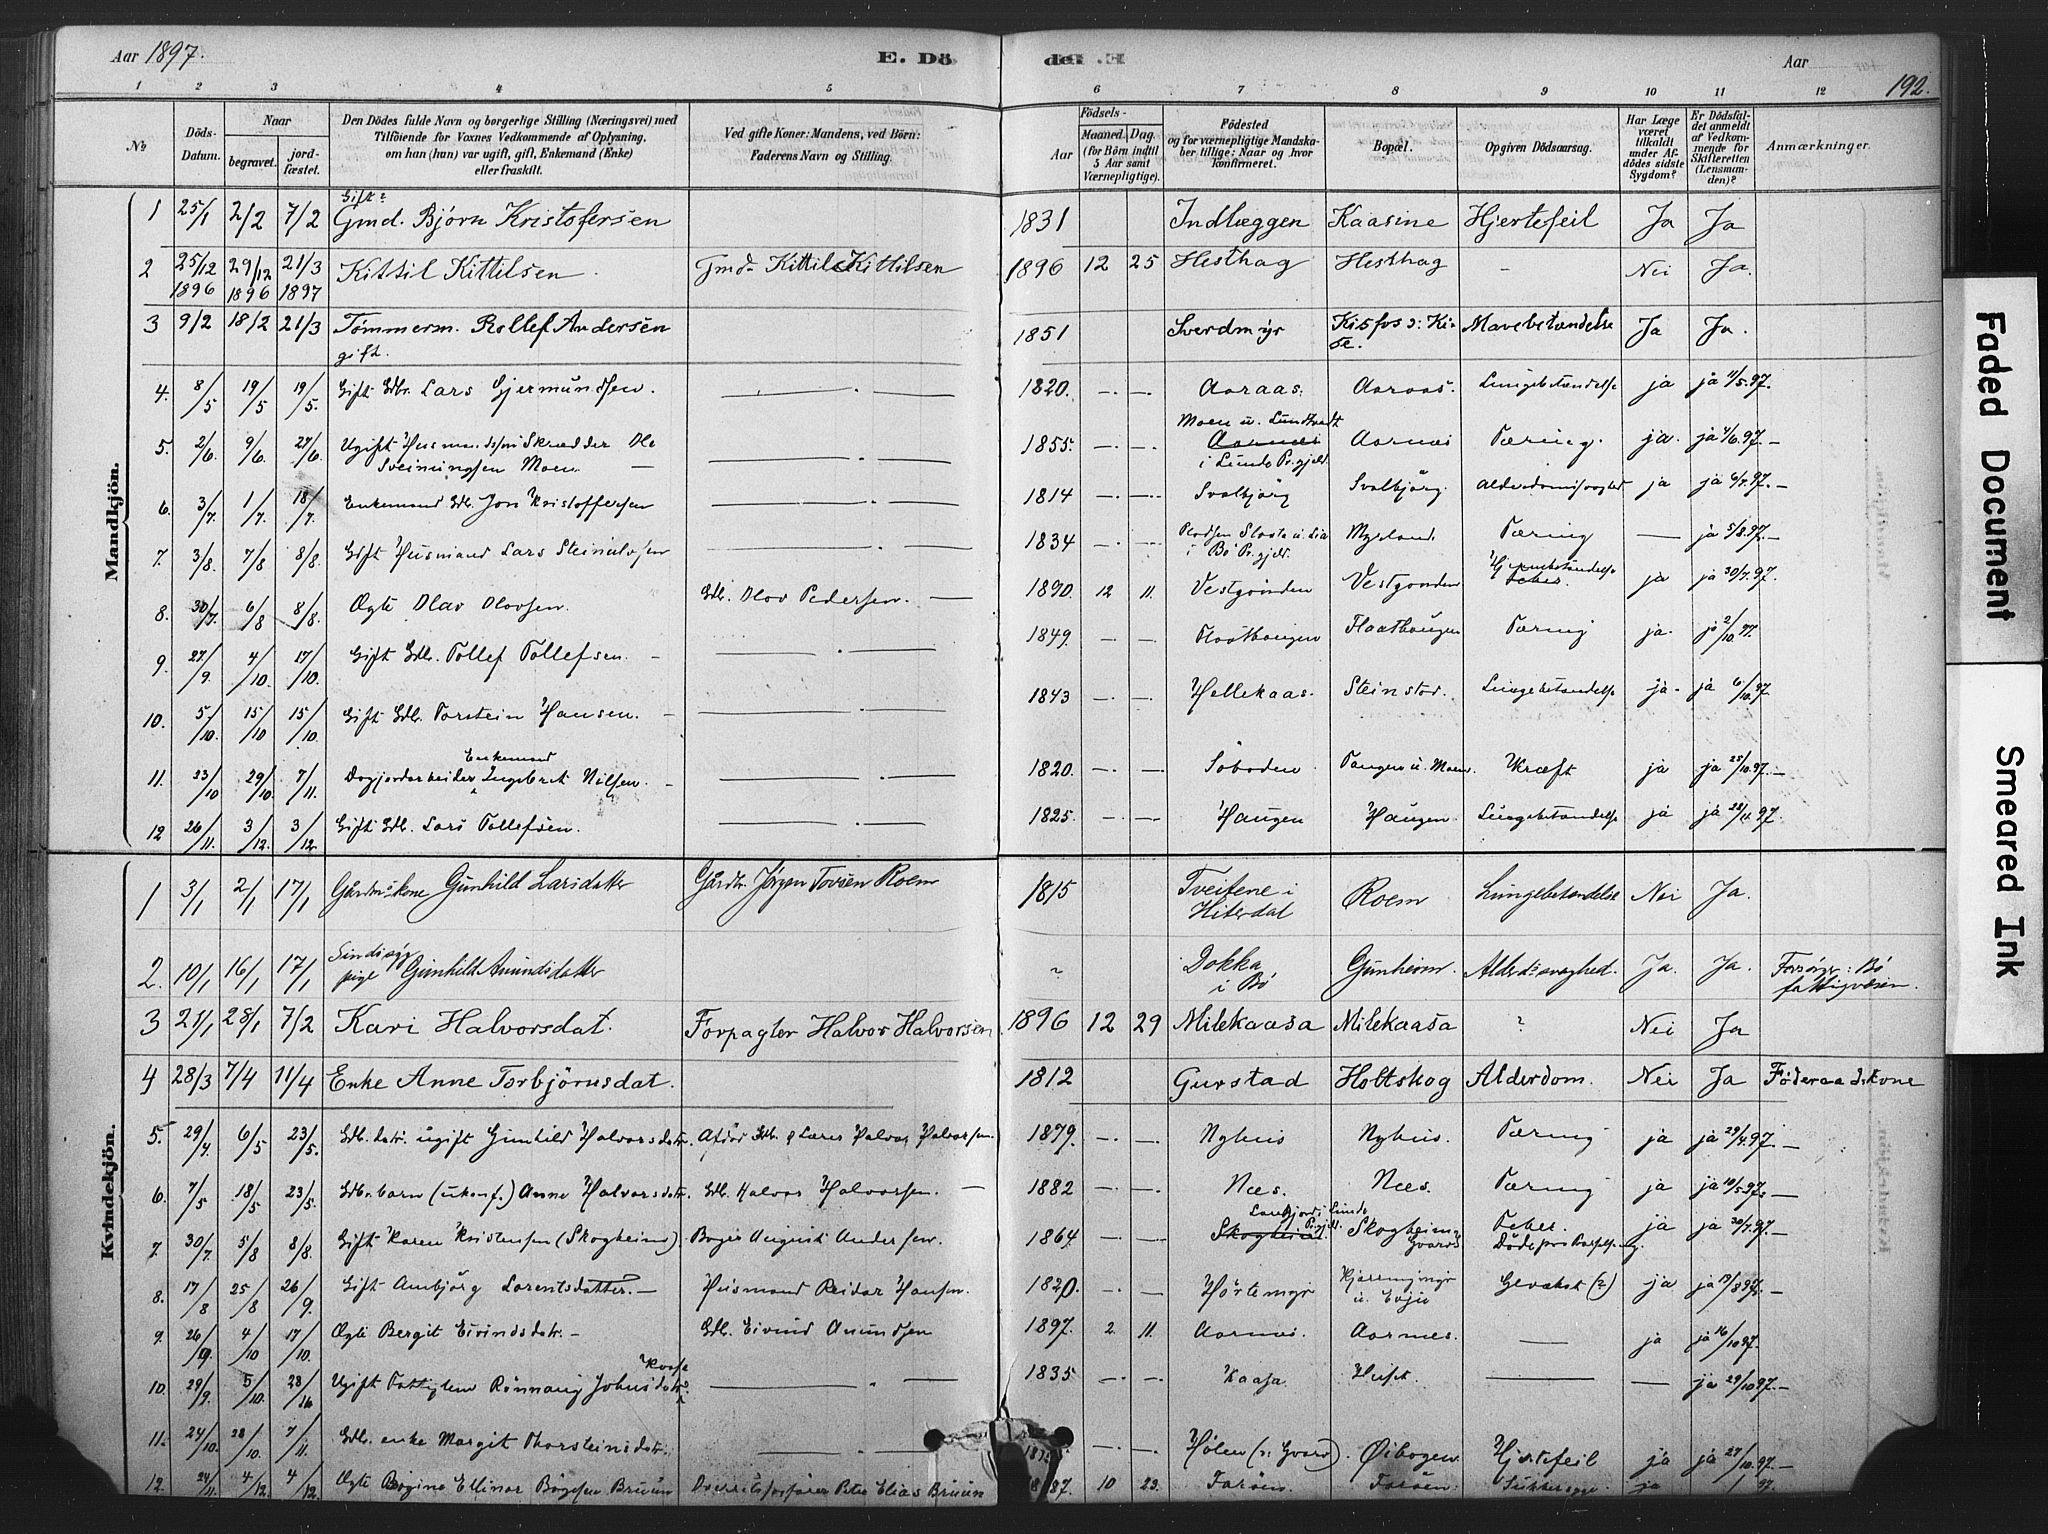 Aar 1897. E. Dö de. Aar 192.
1 2 3 4 5 6 7 8 9 10 11 12
No
Döds-Datum.
Naar
begravet.
jord-fæstet.
Den Dödes fulde Navn og borgerlige Stilling (Næringsvei) med
Tilföiende for Voxnes Vedkommende af Oplysning,
om han (hun) var ugift, gift, Enkemand (Enke)
eller fraskilt.
Ved gifte Koner: Mandens, ved Börn:
Faderens Navn og Stilling.
Födsels-
Aar
Maaned. Dag.
(for Börn indtil
5 Aar samt
Værnepligtige).
Födested
og for værnepligtige Mandska-
ber tillige: Naar og hvor
konfirmeret.
Bopæl.
Opgiven Dödsaarsag.
Har Læge
været
tilkaldt
under Af-
dödes sidste
Sygdom?
Er Dödsfal-
det anmeldt
af Vedkom-
mende for
Skifteretten
(Lensman-
den)?
Anmærkninger.
Mandkjön.
Gift
1 25/1 2/2 7/2 Gmd. Bjørn Kristofersen 1831 Indlæggen Kaasine Hjertefeil Ja Ja
2 25/12 1896 29/12 1896 21/3 1897 Kittil Kittilsen Gmd. Kittil Kittilsen 1896 12 25 Hesthag Hesthag - Nei Ja.
3 9/2 18/2 21/3 Tømmerm. Rollef Andersen 1851 Sverdmyr Mavebetændelse Ja Ja.
gift.
4. 8/5 19/5 19/5. Gift Gbr. Lars Gjermundsen. 1820. Aaraas. Aaraas. Lungebetændelse ja ja 11/5.97.
5. 2/6. 9/6. 27/6. Ugift Husmandsøn Skrædder Ole 1855. Moen u. Lundtvedt Aarnæs Tæring. ja. ja 4/6.97.
Sveinungsen Moen i Lunde Pr.gjeld.
6. 3/7. 1/7. 18/7. Enkemand Gbr. Jon Kristoffersen 1814 Svalbjørg Svalbjørg. ja ja 6/7.97.
7. 3/8. 7/8 8/8. Gift Husmand Lars 1834 i Bø Pr.gjeld. Tæring — ja 5/8.97.
8. 30/7. 6/8 8/8. Ægte Olav Olovsen. Gbr. Olov Pedersen. 1890. 12 11. Vestgonden Vestgonden ja ja 30/7.97.
9. 27/9. 4/10. 17/10. Gift Gbr. Tollef Tollefsen. 1849 Flaathaugen Flaathaugen Tæring ja. ja 2/10.97.
10. 5/10. 15/10 15/10. Gift Gbr. Torstein Hansen. 1843 Hellekaas. Lungebetændelse ja. ja 6/10.97
Enkemand
11. 23/10 29/10. 7/11. Ingebret Nilsen. 1820. Søboden Tangen u. Moen Kræft ja ja 25/10.97.
12 26/11. 3/12. 3/12. Gift Gbr. Lars Tollefsen. 1825. Haugen Haugen. Lungebetændelse ja ja 28/11.97.
Kvindekjön.
1 3/1 2/1 17/1 Gårdm.kone Gunhild Larsdatter Gårdbr. Jørgen Tovsen Roem 1815 Tveitene i Hiterdal Roem Lungebetændelse Nei Ja.
2. 10/1 16/1 17/1 Sindssyg pige Gunhild Amundsdatter Dokka i Bø Gunheim. Ja. Ja. Forsörges i Bö fattigvæsen.
3 21/1 28/1 7/2 Kari Halvorsdat. Forpagter Halvor Halvorsen 1896 12 29 Milekaasa Milekaasa ? Nei Ja
4 28/3 7/4 11/4 Enke Anne Torbjörnsdat. 1812 Gurstad Holtskog Alderdom. Nei Ja Föderaadskone
5. 29/4. 6/5 23/5. Gbr. datr. ugift Gunhild Halvorsdatr. 1879. Nyhus Nyhus. Tæring ja ja 29/4.97.
6. 7/5 18/5 23/5. Gbr. barn (ukonf.) Anne Halvorsdatr. Gbr. Halvor Halvorsen. 1882 Næs. Næs. Tæring ja ja 10/5.97.
7. 30/7. 5/8 8/8. Gift Karen Kristensen (Skogheim). Bager August Andersen. 1864. Skogheim Skogheim Gvarv Feber. ja ja 30/7.97.
8. 17/8 25/8 26/9. Gift Ambjörg Larentsdatter. Husmand Reidar Hansen. 1820. Hörtemyr u. Evju Gevækst (?) ja ja 19/8.97.
9. 26/9. 4/10 17/10. Ægte Bergit Eivindsdatr. Gbr. Eivind Amundsen 1897. 2. 11. Aarnæs. Aarnes. — ja ja 16/10.97.
10. 29/9. 5/10. 28/10 Ugift Fattiglem Rönnaug Johnsdatr. Kaasa 1835 Kaasa Huset — — ja 29/10.97.
11. 24/10. 28/10. 7/11. Gbr. enke Margit Thorsteinsdatr. Hølen (v. Gvarv). Øibogen. Hjertefeil ja ja 27/10.97.
12. 24/11. 4/12. 4/12. Ægte Ellinor Bruun Elias Bruun 1887. 10 23. Farøen. Farøen. ja
Faded Document
Smeared Ink